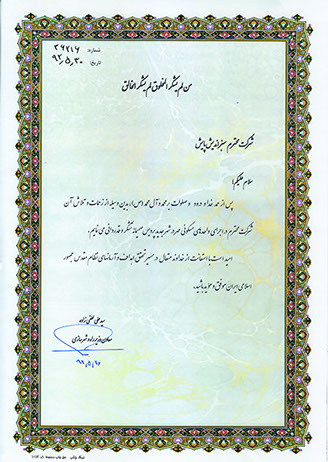 شماره: ۳۶۲۱۶
تاریخ: ۹۲،۵،۳۰
من لم یشکر المخلوق لم یشکر الخالق
شرکت محترم سبزاندیش پایش
سلام علیکم؛
پس از حمد خدا و درود و صلوات بر محمد و آل محمد (ص)، بدین وسیله از زحمات و تلاش آن
شرکت محترم در اجرای واحدهای مسکونی مهر در شهر جدید پردیس صمیمانه تشکر و قدردانی می نمایم.
امید است با استعانت از خداوند متعال در مسیر تحقق اهداف و آرمانهای نظام مقدس جمهوری
اسلامی ایران موفق و موید باشید.
سید علی لطفی زاده
معاون وزیر راه و شهرسازی